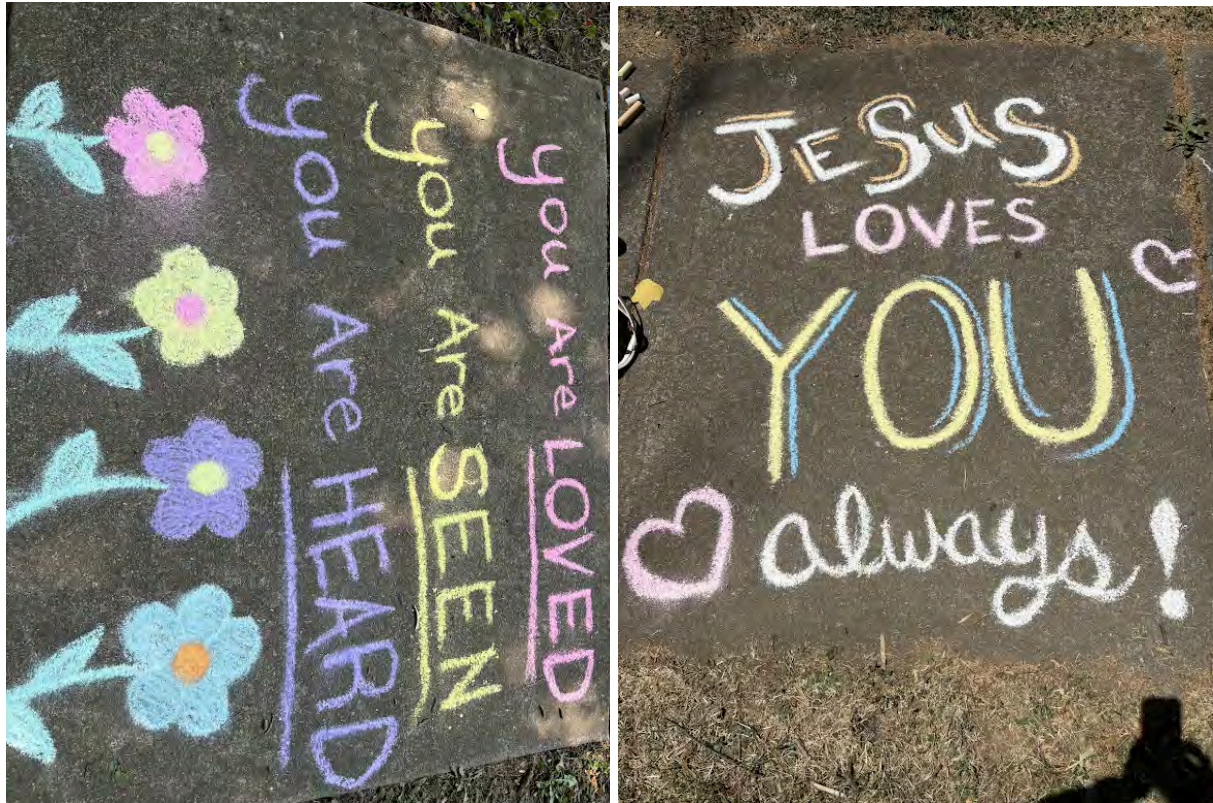 you Are LOVED
you Are SEEN
you Are HEARD
JESUS
LOVES
YOU
always!